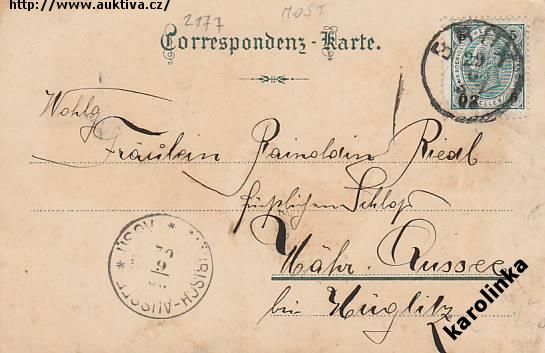 http://www.auktiva.cz/
2177
MOST
Correspondenz-Karte.
Wohlg
Fräulein Rainoldin Riedl
fürstlichen Schloß
Mähr. Aussee
bei Müglitz
MÄHRISCH-AUSSEE * ÚSOV *
29
02
karolinka